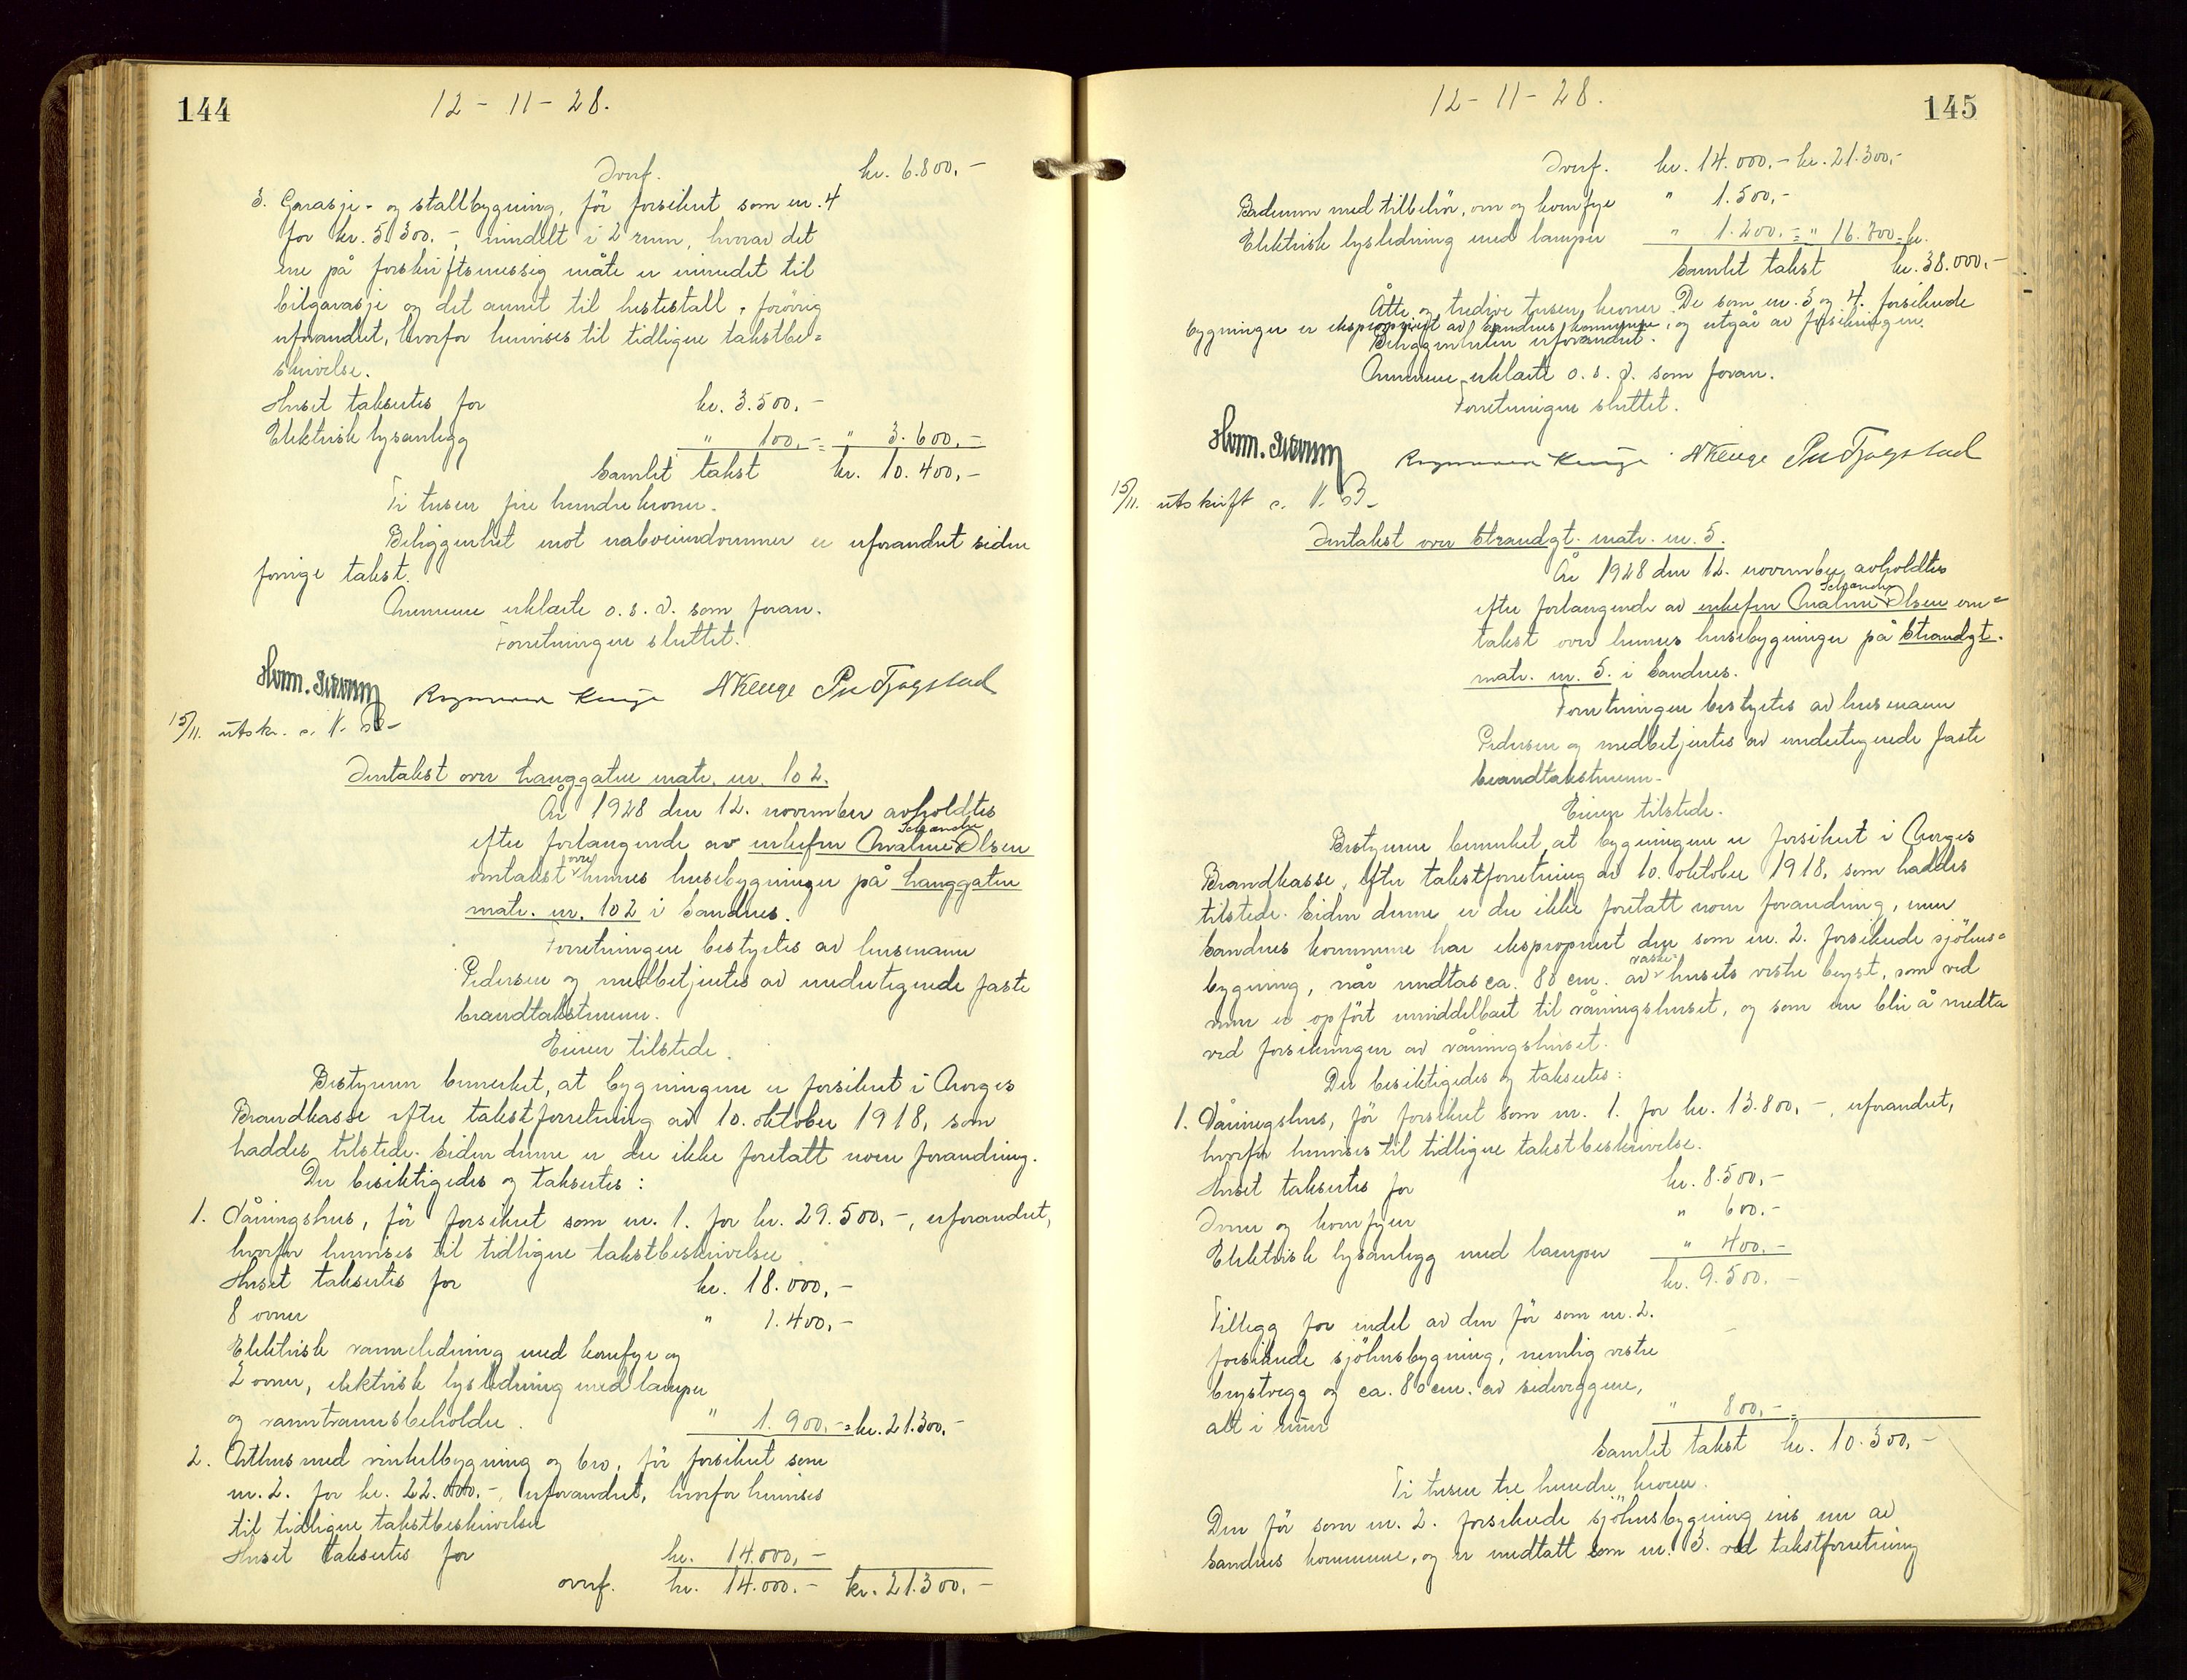 144
12 - 11 - 28.
Overf. kr. 6.800,-
3. Garasje- og stallbygning, før forsikret som nr. 4
for kr. 5.300.-, inndelt i 2 rum, hvorav det
ene på forskriftsmessig måte er innredet til
bilgarasje og det annet til hestestall, forøvrig
uforandret, hvorfor henvises til tidligere takstbe=
skrivelse.
Huset takseres for kr. 3.500,-
Elektrisk lysanlegg " 100,- = " 3.600,-
Samlet takst kr. 10.400,-
Ti tusen fire hundre kroner.
Beliggenhet mot naboeiendommer er uforandret siden
forrige takst.
Mennene erklærte o.s.v. som foran.
Forretningen sluttet.
N Kenge
15/11. utskr.
Omtakst over Langgaten matr. nr. 102.
År 1928 den 12. november avholdtes
efter forlangende av enkefru Malene Olsen
omtakst over hennes husebygninger på Langgaten
matr. nr. 102 i Sandnes.
Forretningen bestyrtes av lensmann
Pedersen og medbetjentes av undertegnede faste
brandtakstmenn.
Eieren tilstede.
Bestyreren bemerket, at bygningene er forsikret i Norges
Brandkasse efter takstforretning av 10. oktober 1918, som
haddes tilstede. Siden denne er der ikke foretatt noen forandring.
Der besiktigedes og takseres:
1. Våningshus, før forsikret som nr. 1. for kr. 29.500,-, uforandret,
hvorfor henvises til tidligere takstbeskrivelse
Huset takseres for kr. 18.000,-
8 ovner " 1.400,-
Elektrisk varmeledning med komfyr og
2 ovner, elektrisk lysledning med lamper
og varmtvannsbeholder. " 1.900,- = kr. 21.300,-
2. Uthus med vinkelbygning og bro, før forsikret som
nr. 2. for kr. 22.000.-, uforandret, hvorfor henvises
til tidligere takstbeskrivelse
Huset takseres for kr. 14.000,-
overf. kr. 14.000.- kr. 21.300,-
145
12 - 11 - 28.
Overf. kr. 14.000,- kr. 21.300,-
Baderum med tilbehör, ovn og komfyr " 1.500,-
Elektrisk lysledning med lamper " 1.200.- = " 16.700 = kr.
Samlet takst kr. 38.000,-
Åtte og tredive tusen kroner. De som nr. 3 og 4. forsikrede
bygninger er ekspropriert av Sandnes kommune, og utgår av forsikringen.
Beliggenheten uforandret.
Mennene erklærte o.s.v. som foran.
Forretningen sluttet.
N Kenge
15/11. utskrift
Omtakst over Strandgt. matr. nr. 5.
År 1928 den 12. november avholdtes
efter forlangende av enkefru Malene Olsen om=
takst over hennes husebygninger på Strandgt.
matr. nr. 5. i Sandnes.
Forretningen bestyrtes av lensmann
Pedersen og medbetjentes av undertegnede faste
brandtakstmenn.
Eieren tilstede.
Bestyreren bemerket at bygningene er forsikret i Norges
Brandkasse, efter takstforretning av 10. oktober 1918, som haddes
tilstede. Siden denne er der ikke foretatt noen forandring, men
Sandnes kommune har ekspropriert den som nr. 2. forsikrede sjöhus=
bygning, når undtas ca. 80 cm. av husets vestre bryst, som ved
mur er opført umiddelbart til våningshuset, og som nu blir å medta
ved forsikringen av våningshuset.
Der besiktigedes og takseres:
1. Våningshus, för forsikret som nr. 1. for kr. 13.800,-, uforandret,
hvorfor henvises til tidligere takstbeskrivelse.
Huset takseres for kr. 8.500,-
Ovner og komfyrer " 600.-
Elektrisk lysanlegg med lamper " 400.-
kr. 9.500.-
Tillegg for endel av den för som nr. 2.
forsikrede sjöhusbygning, nemlig vestre
brystvegg og ca. 80 cm. av sideveggene,
alt i mur " 800,- =
Samlet takst kr. 10.300,-
Ti tusen tre hundre kroner.
Den för som nr. 2. forsikrede sjöhusbygning eies nu av
Sandnes kommune, og er medtatt som nr. 3. ved takstforretning